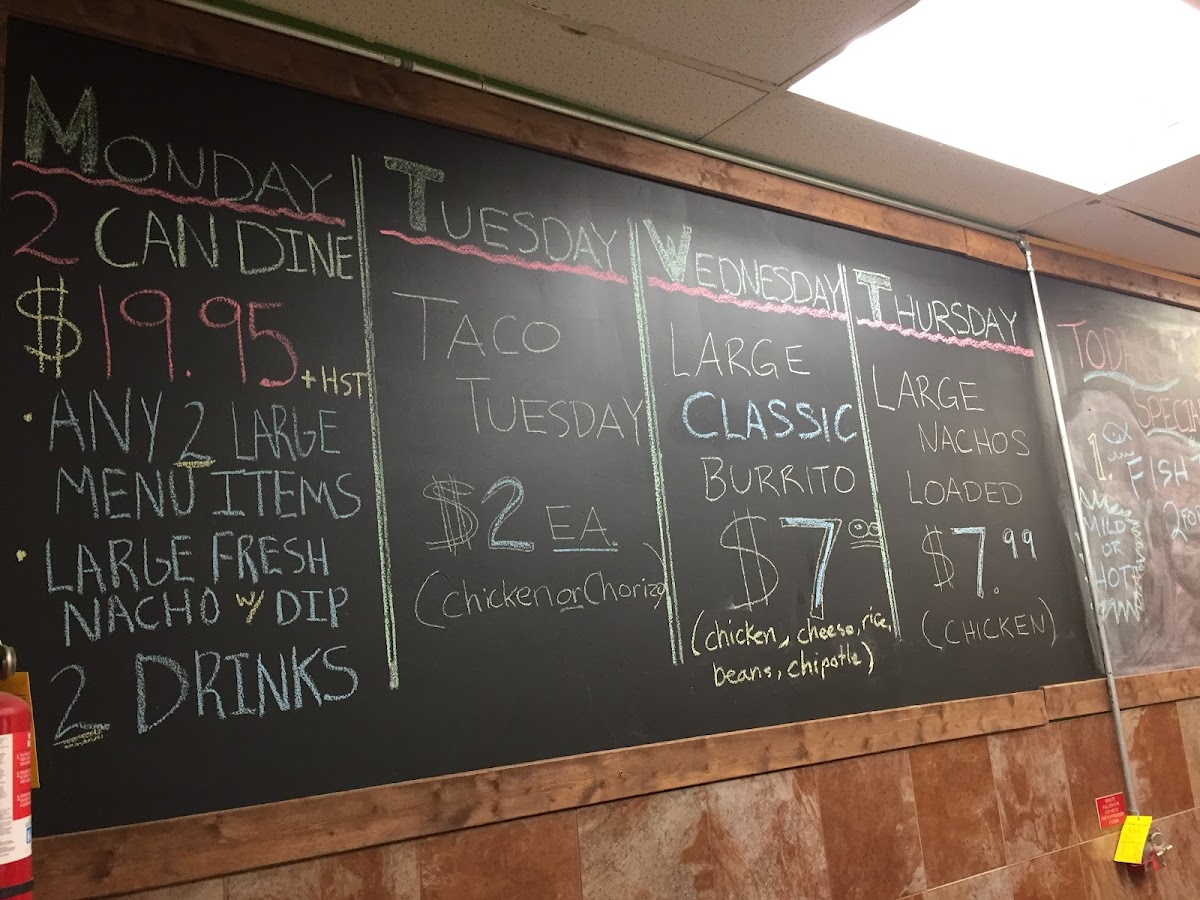 MONDAY
2 CAN DINE
$19.95 +HST
ANY 2 LARGE
MENU ITEMS
LARGE FRESH
NACHO w/ DIP
2 DRINKS
TUESDAY
TACO
TUESDAY
$2 EA.
(chicken or Chorizo)
WEDNESDAY
LARGE
CLASSIC
BURRITO
$7.00
(chicken, cheese, rice,
beans, chipotle)
THURSDAY
LARGE
NACHOS
LOADED
$7.99
(CHICKEN)
1. FISH
MILD
OR
HOT